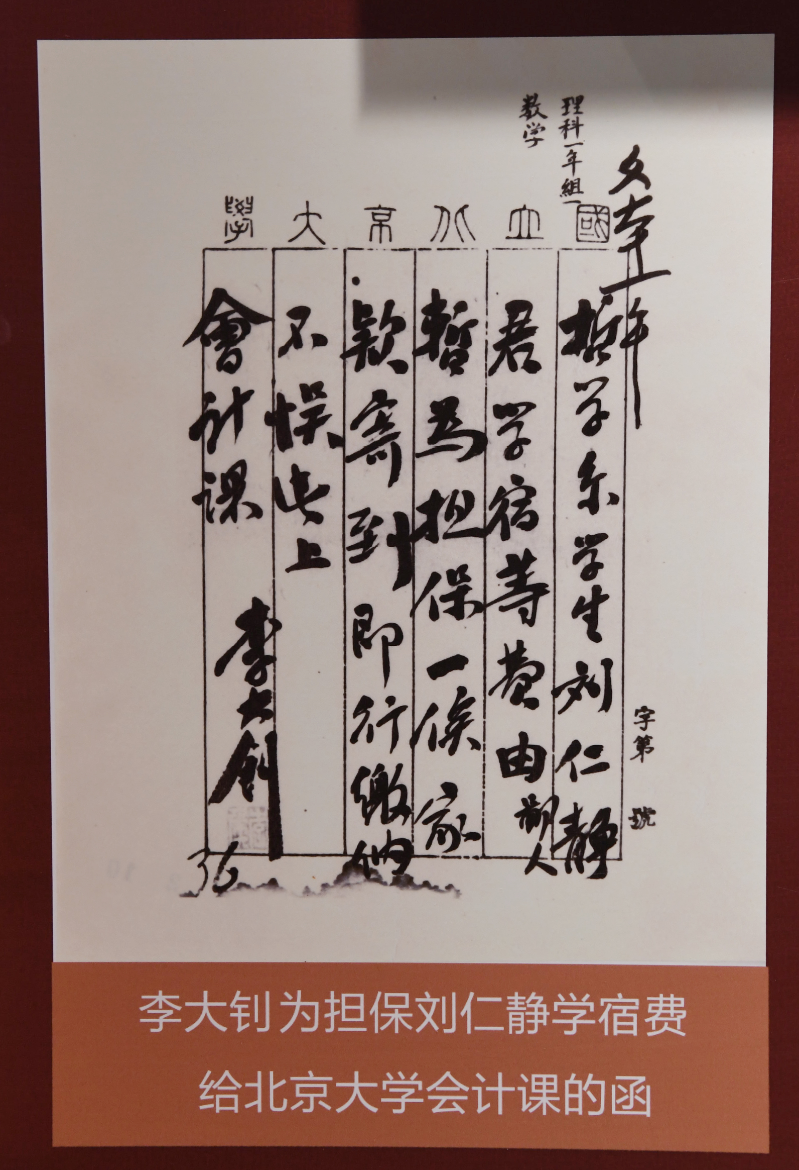 理科一年組一
数学
國立北京大學
哲学系学生刘仁静
君学宿等费由鄙人
暫为担保一俟家
款寄到即行缴纳
不误此上
會计课
李大釗
字第 號
36
李大钊为担保刘仁静学宿费
给北京大学会计课的函